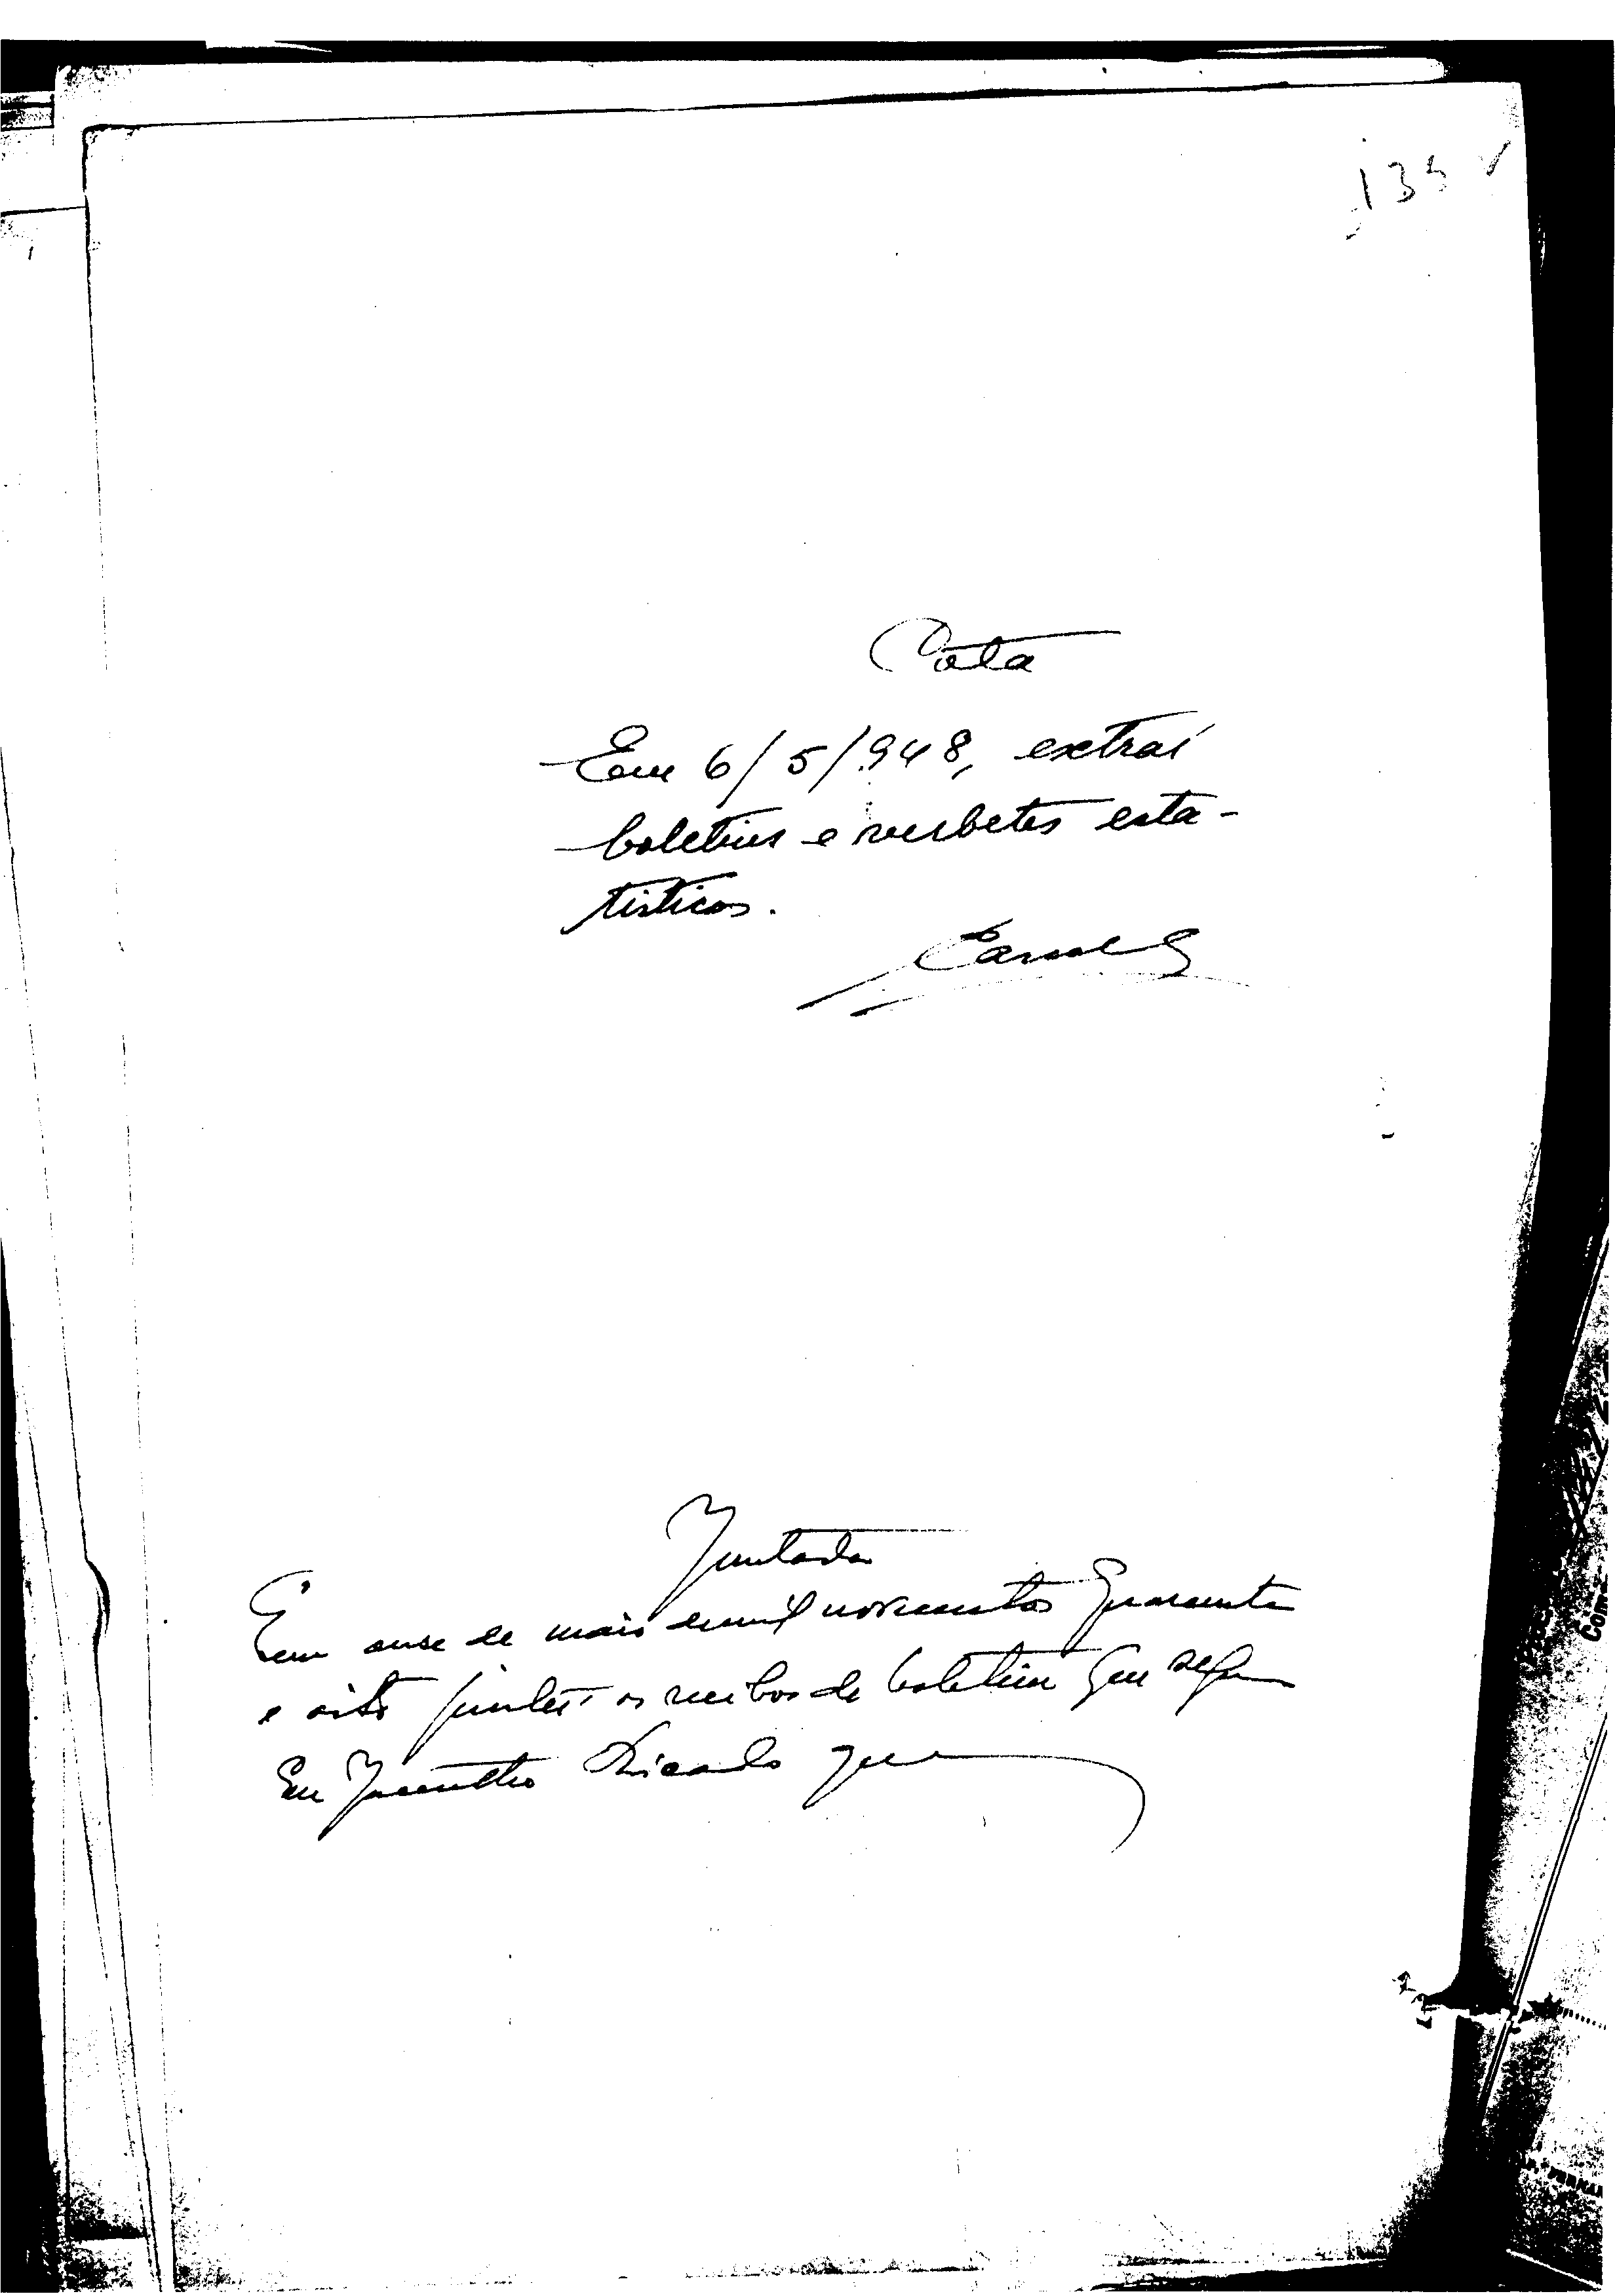 135 v
Cota
Em 6/5/948, extraí
boletins e verbetes esta-
tisticos.
Juntada
Em onze de maio de mil novecentos quarenta
e oito junto os recibos de boletim que segue
Eu Ricardo